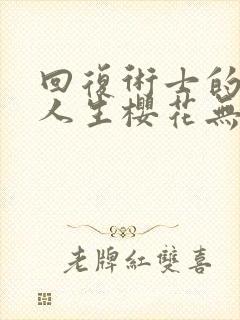 回復術士的
人生櫻花無
老牌紅雙喜